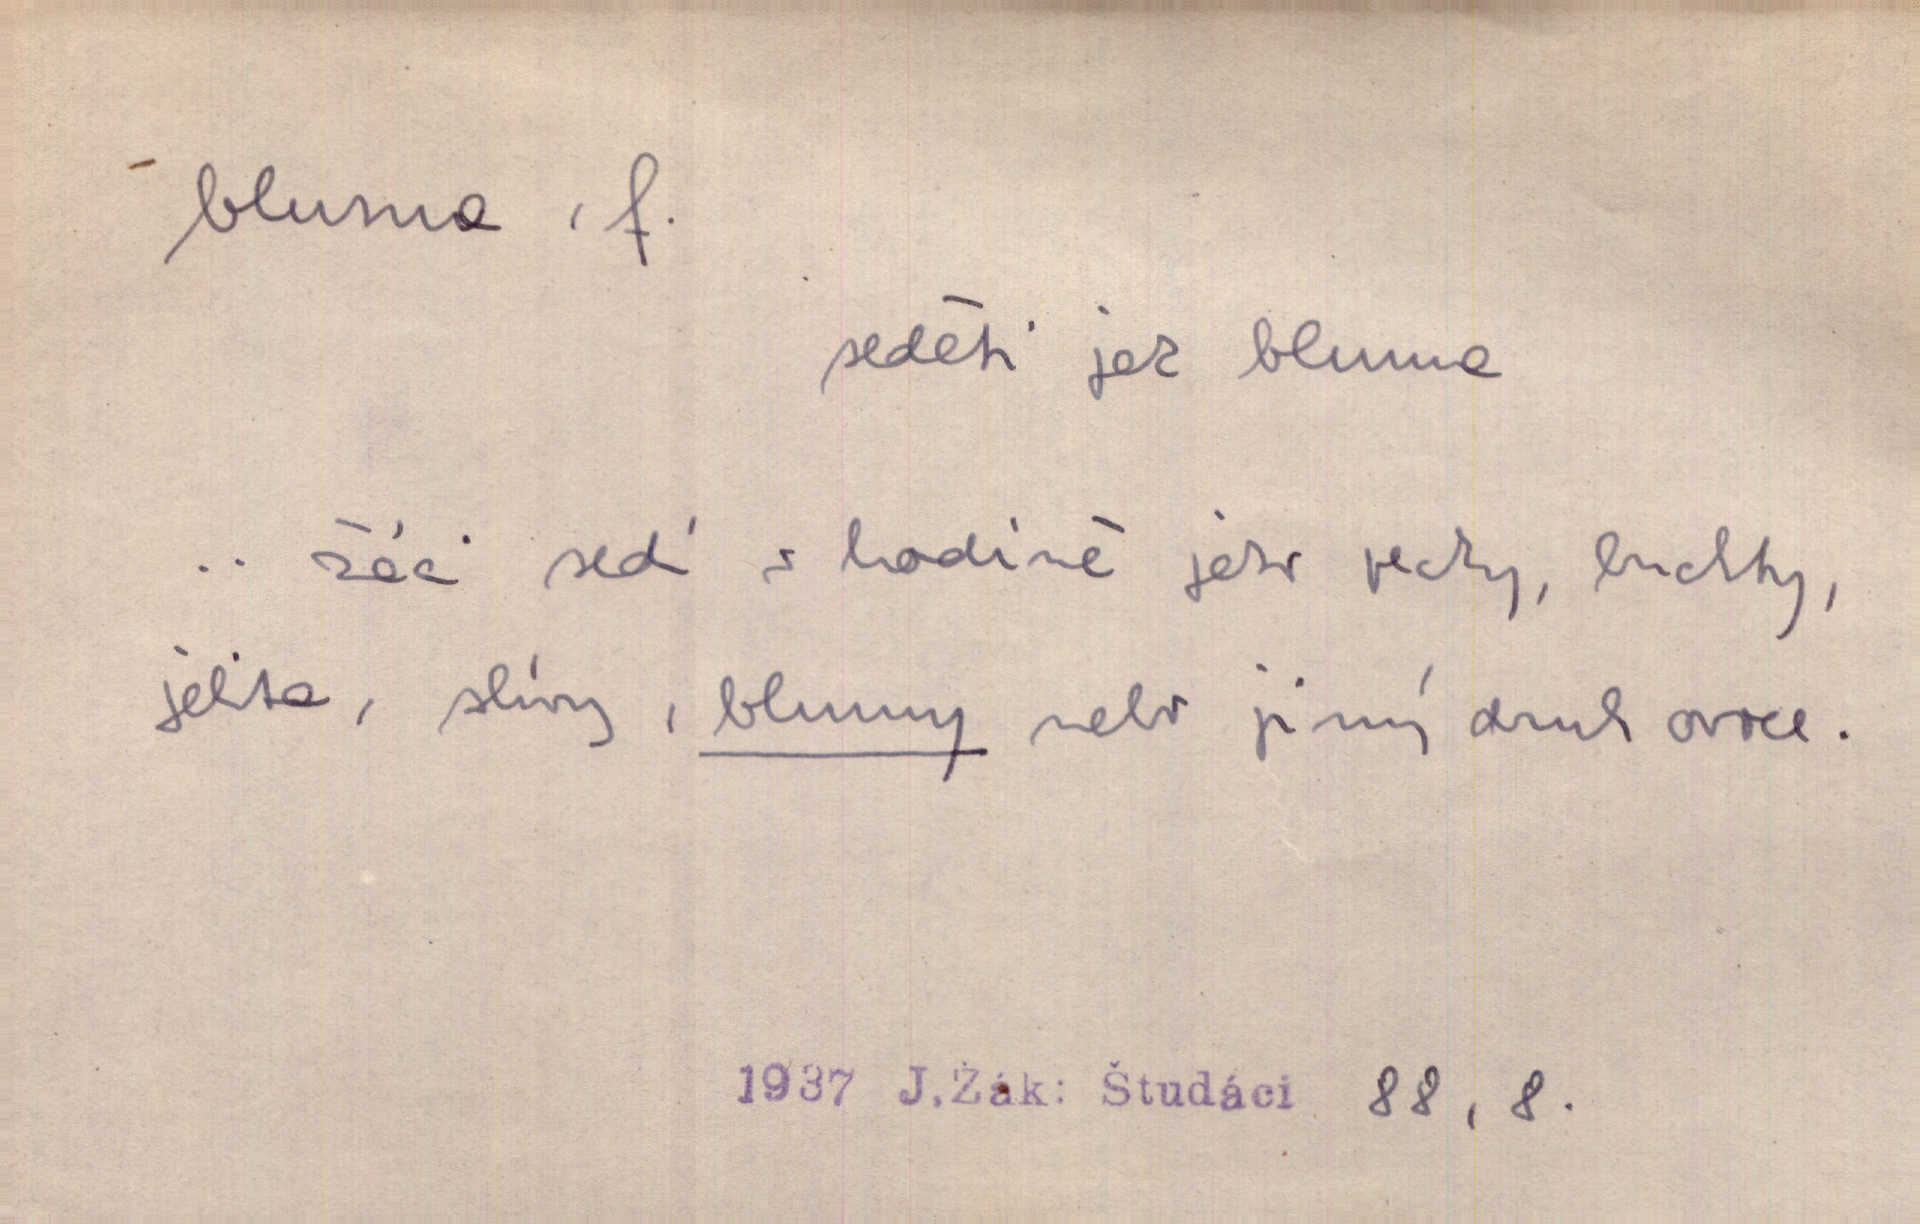 bluma, f.
seděti jak bluma
.. žáci sedí v hodině jako pecky, buchty,
jelita, slívy, blumy nebo jiný druh ovoce.
1937 J.Žák: Študáci 88, 8.